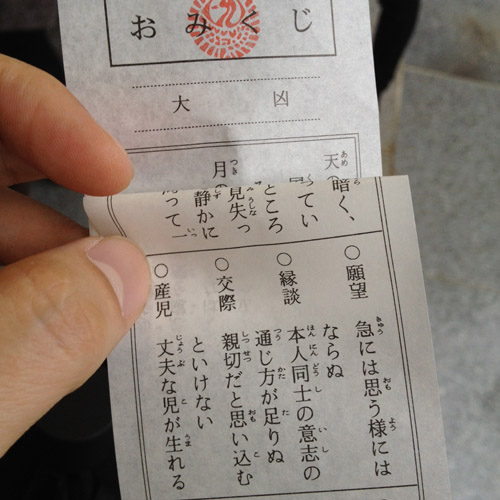 おみくじ
大凶
天
月の
暗く、
ってい
ところ
見失っ
静かに
って
○願望
急には思う様には
ならぬ
○縁談
本人同士の意志の
通じ方が足りぬ
○交際
親切だと思い込む
といけない
○産児
丈夫な児が生れる